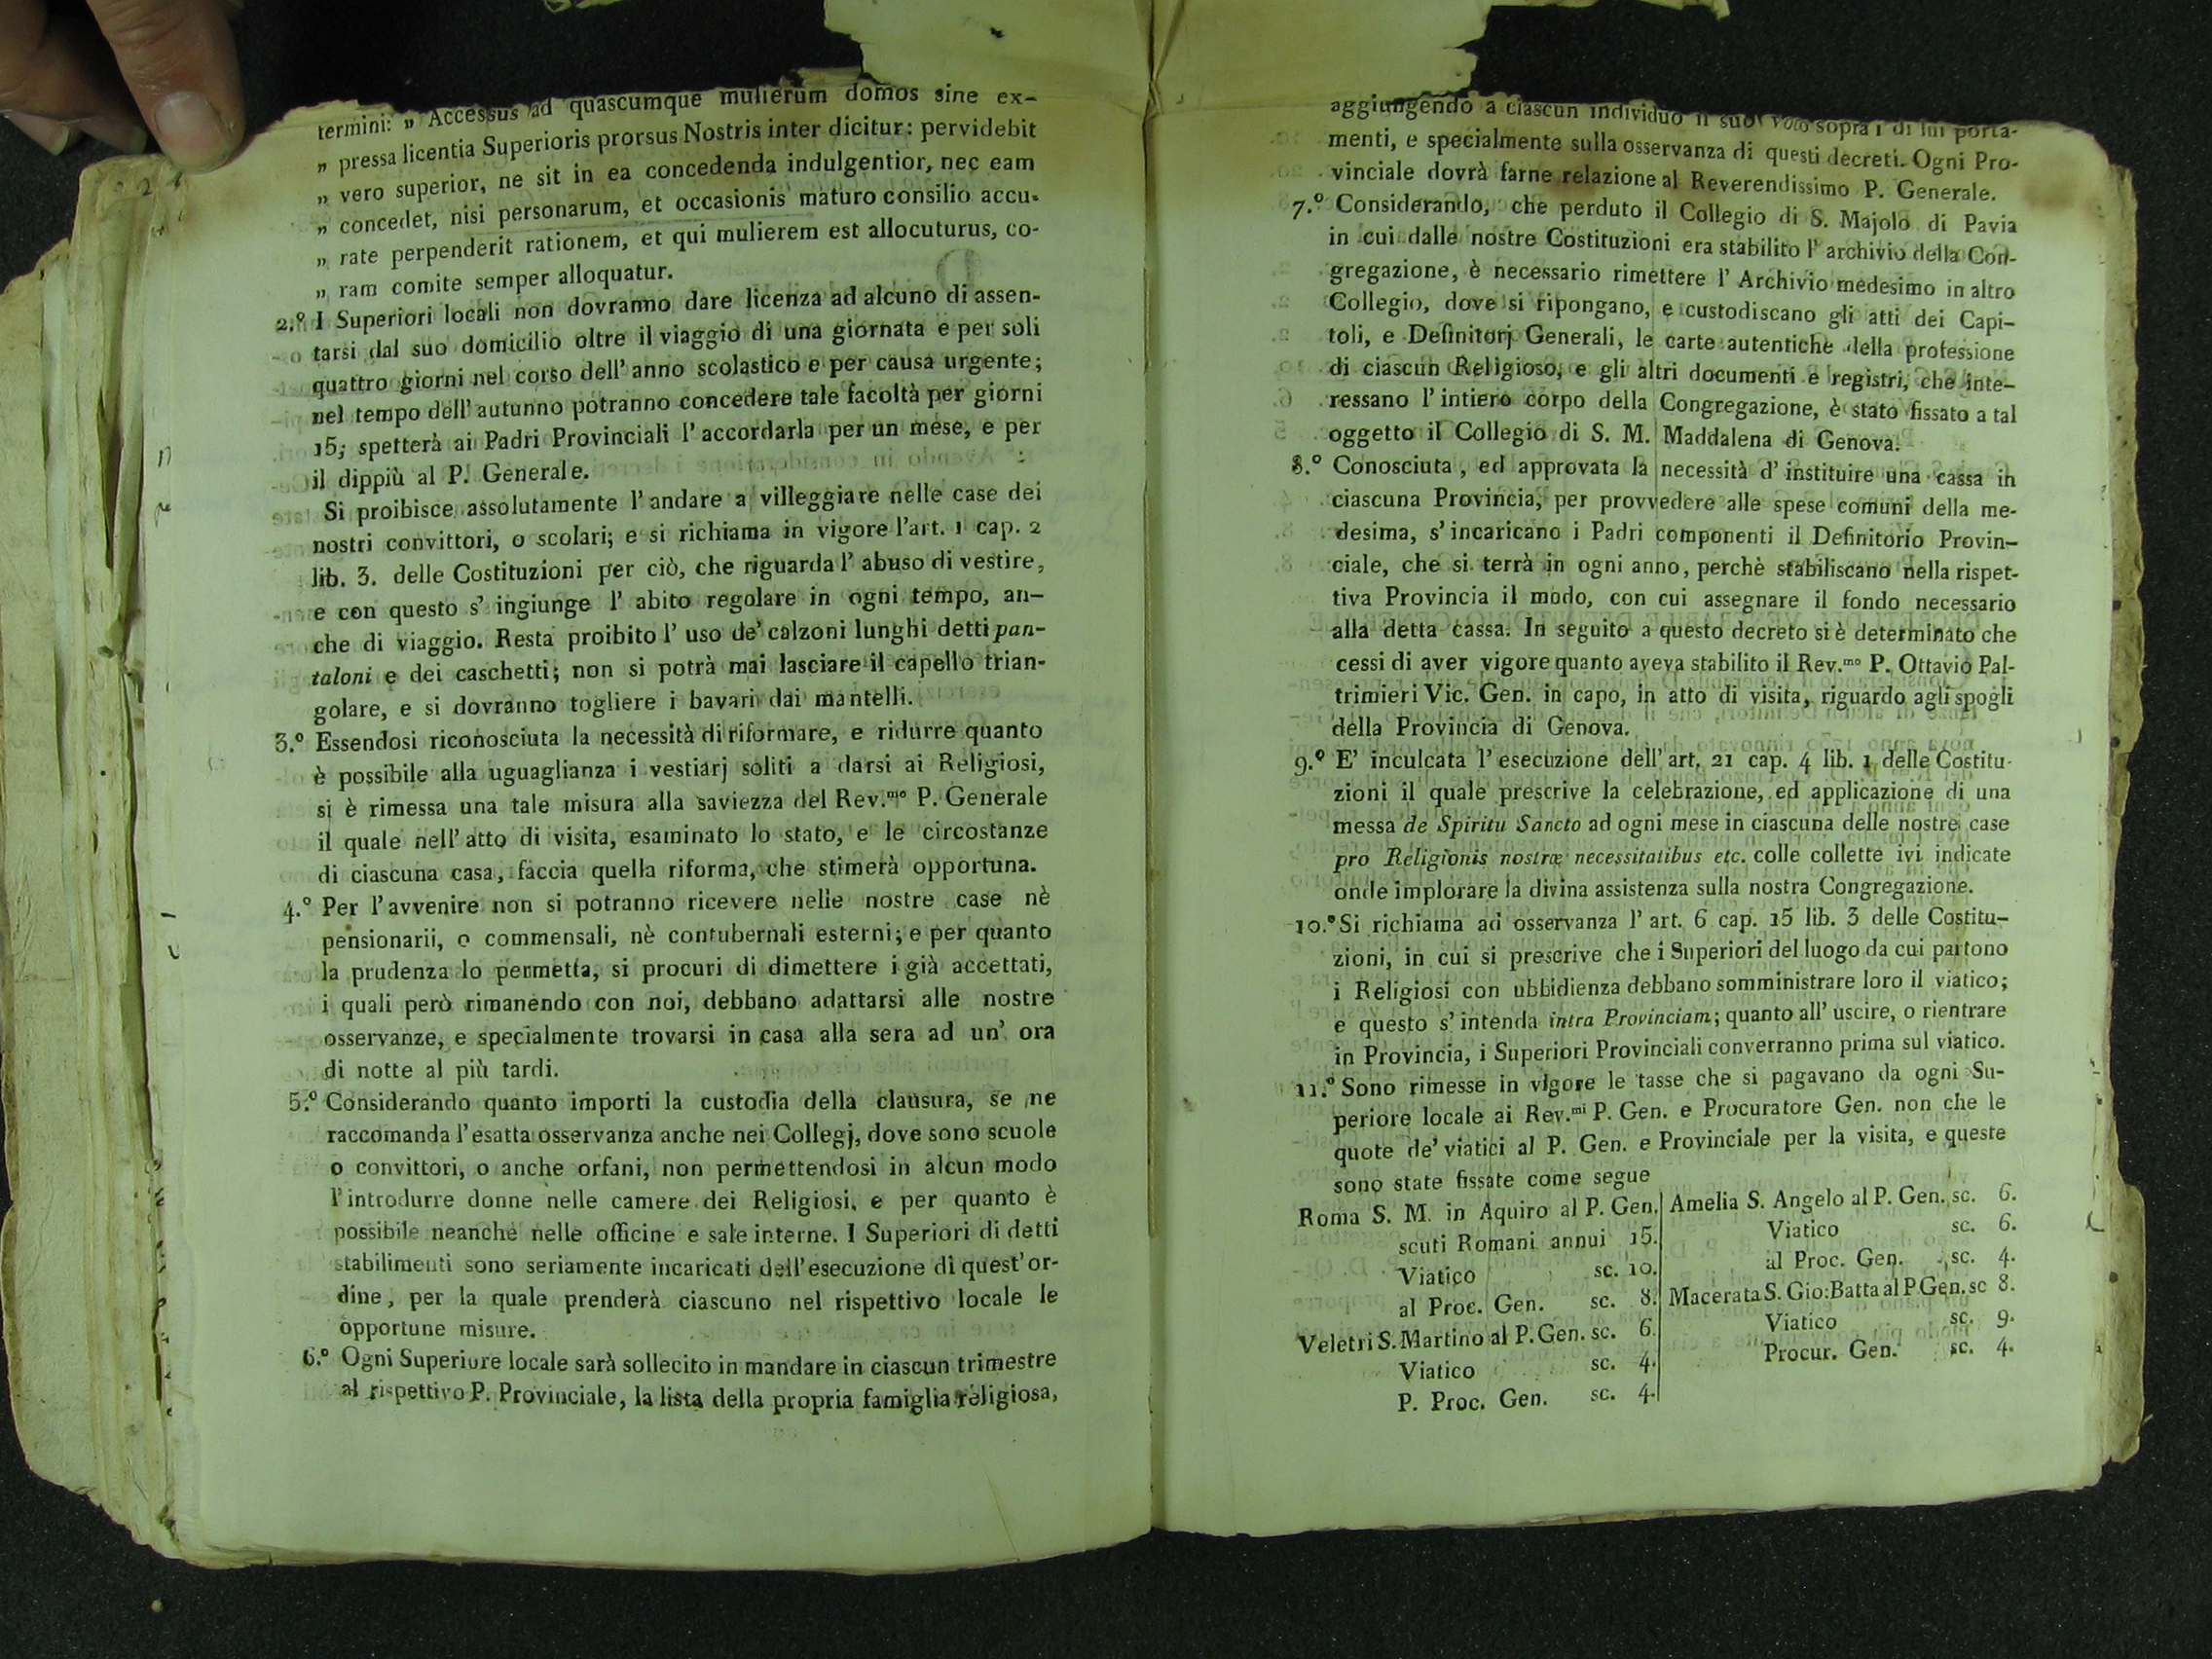 termini: „ Accessus ad quascumque mulierum domos sine ex-
„ pressa licentia Superioris prorsus Nostris inter dicitur: pervidebit
„ vero superior, ne sit in ea concedenda indulgentior, nec eam
„ concedet, nisi personarum, et occasionis maturo consilio accu-
„ rate perpenderit rationem, et qui mulierem est allocuturus, co-
„ ram comite semper alloquatur.
2.º I Superiori locali non dovranno dare licenza ad alcuno di assen-
tarsi dal suo domicilio oltre il viaggio di una giornata e per soli
quattro giorni nel corso dell' anno scolastico e per causa urgente;
nel tempo dell' autunno potranno concedere tale facoltà per giorni
15; spetterà ai Padri Provinciali l' accordarla per un mese, e per
il dippiù al P. Generale.
Si proibisce assolutamente l' andare a villeggiare nelle case dei
nostri convittori, o scolari; e si richiama in vigore l'art. 1 cap. 2
lib. 3. delle Costituzioni per ciò, che riguarda l' abuso di vestire,
e con questo s' ingiunge l' abito regolare in ogni tempo, an-
che di viaggio. Resta proibito l' uso de' calzoni lunghi detti pan-
taloni e dei caschetti; non si potrà mai lasciare il capello trian-
golare, e si dovranno togliere i bavari dai mantelli.
3.º Essendosi riconosciuta la necessità di riformare, e ridurre quanto
è possibile alla uguaglianza i vestiarj soliti a darsi ai Religiosi,
si è rimessa una tale misura alla saviezza del Rev.mo P. Generale
il quale nell' atto di visita, esaminato lo stato, e le circostanze
di ciascuna casa, faccia quella riforma, che stimerà opportuna.
4.º Per l'avvenire non si potranno ricevere nelle nostre case nè
pensionarii, o commensali, nè contubernali esterni; e per quanto
la prudenza lo permetta, si procuri di dimettere i già accettati,
i quali però rimanendo con noi, debbano adattarsi alle nostre
osservanze, e specialmente trovarsi in casa alla sera ad un' ora
di notte al più tardi.
5.º Considerando quanto importi la custodia della clausura, se ne
raccomanda l'esatta osservanza anche nei Collegj, dove sono scuole
o convittori, o anche orfani, non permettendosi in alcun modo
l'introdurre donne nelle camere dei Religiosi, e per quanto è
possibile neanche nelle officine e sale interne. I Superiori di detti
stabilimenti sono seriamente incaricati dell'esecuzione di quest' or-
dine, per la quale prenderà ciascuno nel rispettivo locale le
opportune misure.
6.º Ogni Superiore locale sarà sollecito in mandare in ciascun trimestre
al rispettivo P. Provinciale, la lista della propria famiglia religiosa,
aggiungendo a ciascun individuo il suo voto sopra i di lui porta-
menti, e specialmente sulla osservanza di questi decreti. Ogni Pro-
vinciale dovrà farne relazione al Reverendissimo P. Generale.
7.º Considerando, che perduto il Collegio di S. Majolo di Pavia
in cui dalle nostre Costituzioni era stabilito l' archivio della Con-
gregazione, è necessario rimettere l' Archivio medesimo in altro
Collegio, dove si ripongano, e custodiscano gli atti dei Capi-
toli, e Definitorj Generali, le carte autentiche della professione
di ciascun Religioso, e gli altri documenti e registri, che inte-
ressano l' intiero corpo della Congregazione, è stato fissato a tal
oggetto il Collegio di S. M. Maddalena di Genova.
8.º Conosciuta, ed approvata la necessità d' instituire una cassa in
ciascuna Provincia, per provvedere alle spese comuni della me-
desima, s' incaricano i Padri componenti il Definitorio Provin-
ciale, che si terrà in ogni anno, perchè stabiliscano nella rispet-
tiva Provincia il modo, con cui assegnare il fondo necessario
alla detta cassa. In seguito a questo decreto si è determinato che
cessi di aver vigore quanto aveva stabilito il Rev.mo P. Ottavio Pal-
trimieri Vic. Gen. in capo, in atto di visita, riguardo agli spogli
della Provincia di Genova.
9.º E' inculcata l' esecuzione dell' art. 21 cap. 4 lib. 1 delle Costitu-
zioni il quale prescrive la celebrazione, ed applicazione di una
messa de Spiritu Sancto ad ogni mese in ciascuna delle nostre case
pro Religionis nostræ necessitatibus etc. colle collette ivi indicate
onde implorare la divina assistenza sulla nostra Congregazione.
10.º Si richiama ad osservanza l' art. 6 cap. 15 lib. 3 delle Costitu-
zioni, in cui si prescrive che i Superiori del luogo da cui partono
i Religiosi con ubbidienza debbano somministrare loro il viatico;
e questo s' intenda intra Provinciam; quanto all' uscire, o rientrare
in Provincia, i Superiori Provinciali converranno prima sul viatico.
11.º Sono rimesse in vigore le tasse che si pagavano da ogni Su-
periore locale ai Rev.mi P. Gen. e Procuratore Gen. non che le
quote de' viatici al P. Gen. e Provinciale per la visita, e queste
sono state fissate come segue
Roma S. M. in Aquiro al P. Gen.
scuti Romani annui 15.
Viatico sc. 10.
al Proc. Gen. sc. 8.
Veletri S. Martino al P. Gen. sc. 6.
Viatico sc. 4.
P. Proc. Gen. sc. 4.
Amelia S. Angelo al P. Gen. sc. 6.
Viatico sc. 6.
al Proc. Gen. sc. 4.
Macerata S. Gio: Batta al P. Gen. sc 8.
Viatico sc. 9.
Procur. Gen. sc. 4.